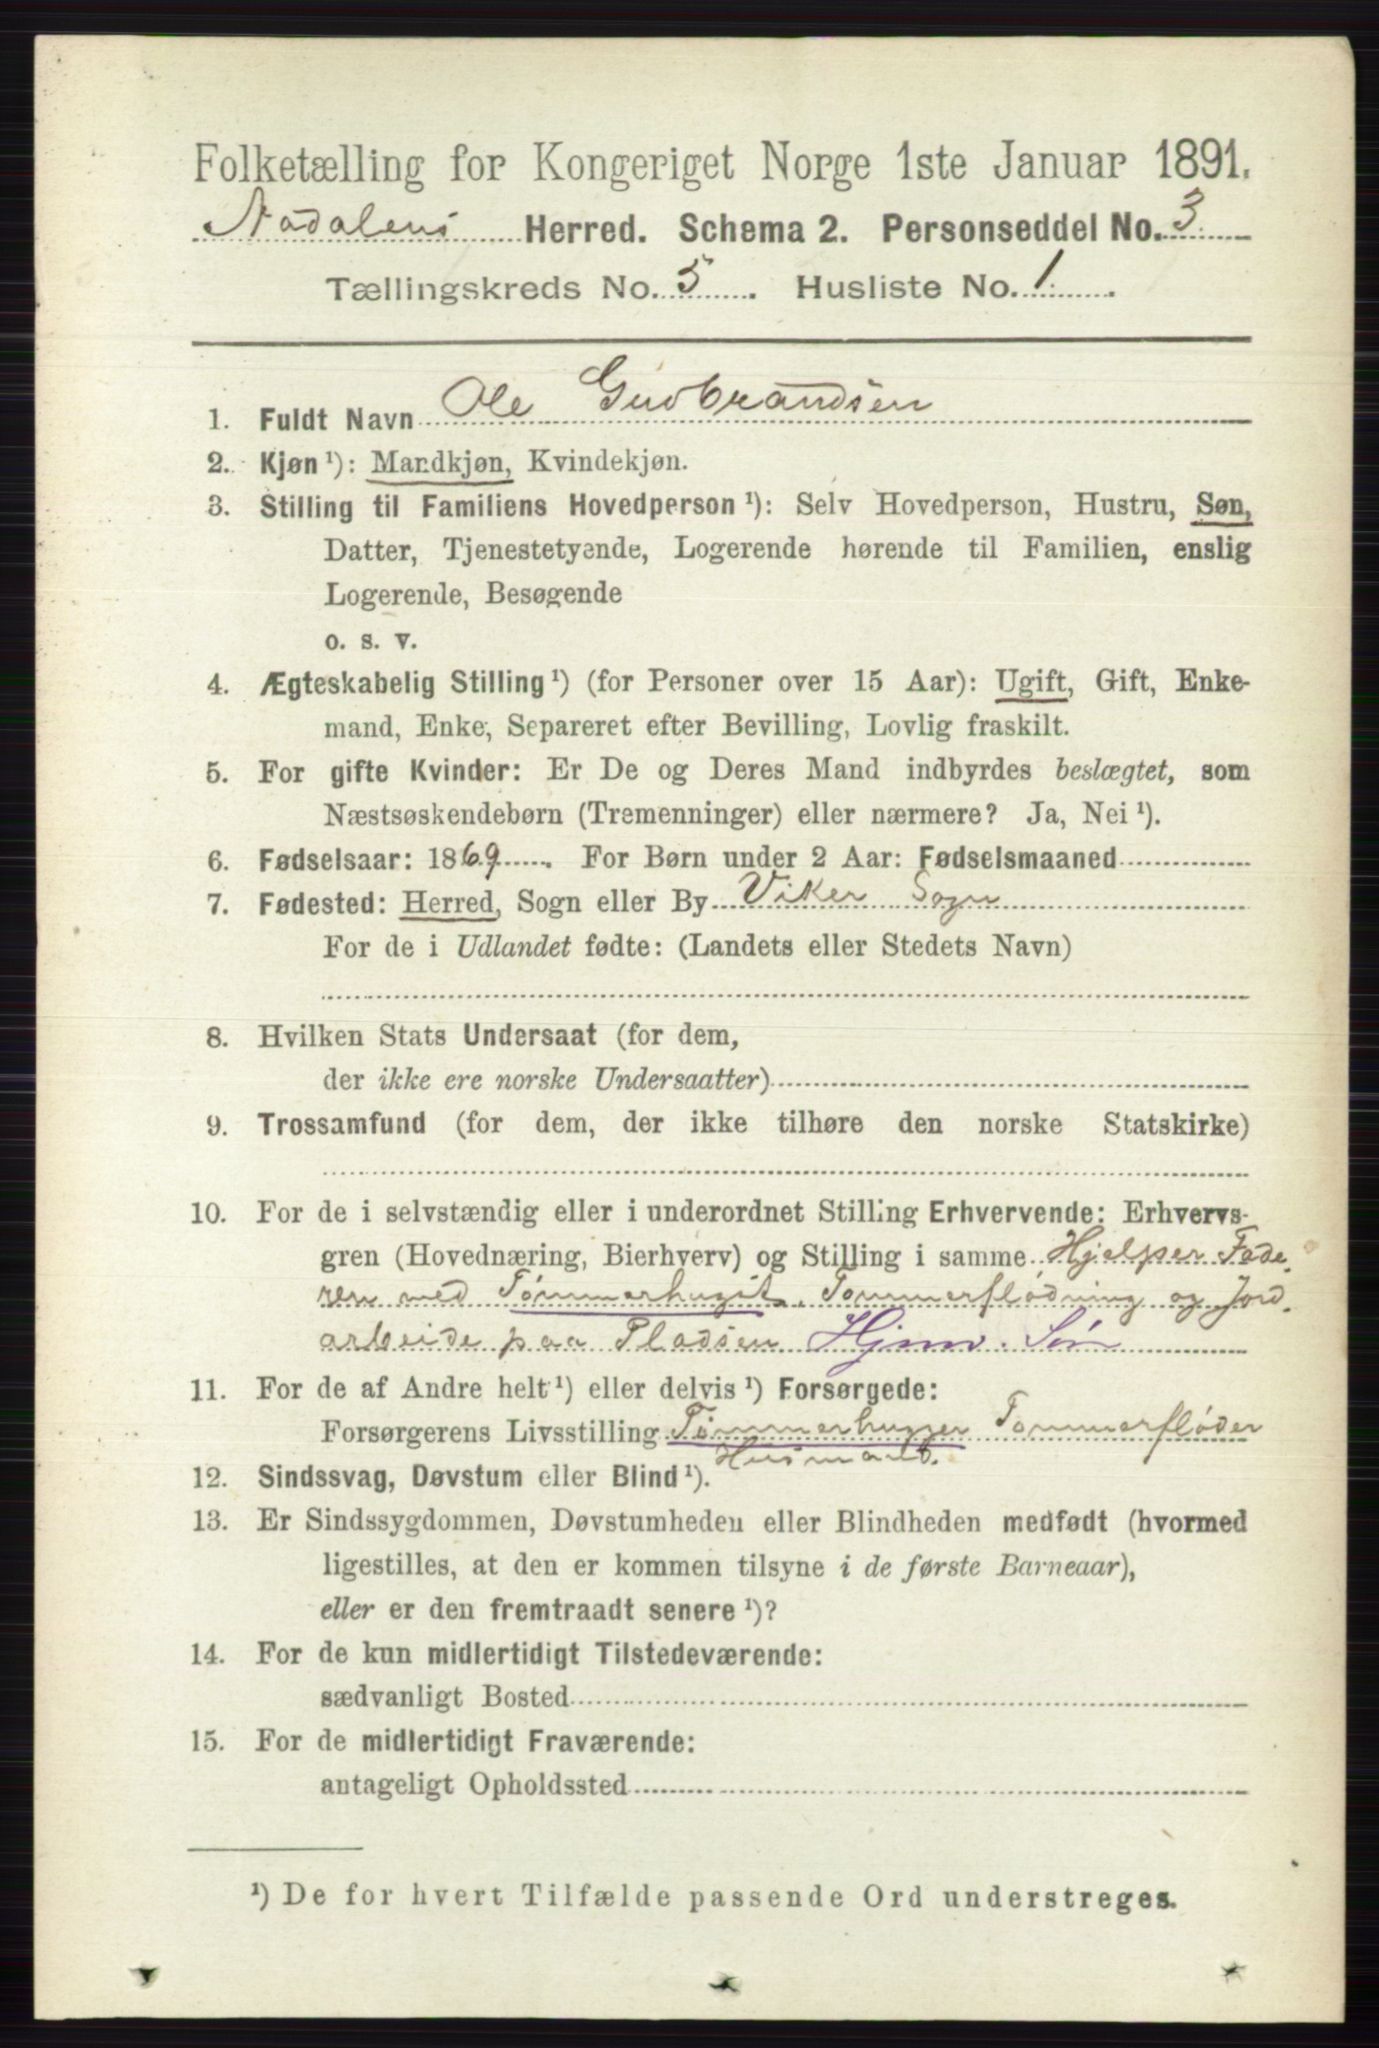 Folketælling for Kongeriget Norge 1ste Januar 1891.
Aadalens Herred. Schema 2. Personseddel No. 3
Tællingskreds No. 5. Husliste No. 1.
1. Fuldt Navn Ole Gudbrandsen
2. Kjøn ¹): Mandkjøn, Kvindekjøn.
3. Stilling til Familiens Hovedperson ¹): Selv Hovedperson, Hustru, Søn,
Datter, Tjenestetyende, Logerende hørende til Familien, enslig
Logerende, Besøgende
o. s. v.
4. Ægteskabelig Stilling ¹) (for Personer over 15 Aar): Ugift, Gift, Enke-
mand, Enke, Separeret efter Bevilling, Lovlig fraskilt.
5. For gifte Kvinder: Er De og Deres Mand indbyrdes beslægtet, som
Næstsøskendebørn (Tremenninger) eller nærmere? Ja, Nei ¹).
6. Fødselsaar: 1869. For Børn under 2 Aar: Fødselsmaaned
7. Fødested: Herred, Sogn eller By Viker Sogn
For de i Udlandet fødte: (Landets eller Stedets Navn)
8. Hvilken Stats Undersaat (for dem,
der ikke ere norske Undersaatter)
9. Trossamfund (for dem, der ikke tilhøre den norske Statskirke)
10. For de i selvstændig eller i underordnet Stilling Erhvervende: Erhvervs-
gren (Hovednæring, Bierhverv) og Stilling i samme Hjelper Fade-
ren med Tømmerhugst, Tømmerflødning og Jord-
arbeide paa Pladsen Hjmv. Søn
11. For de af Andre helt ¹) eller delvis ¹) Forsørgede:
Forsørgerens Livsstilling Tømmerhugger Tømmerfløder
Husmand.
12. Sindssvag, Døvstum eller Blind ¹).
13. Er Sindssygdommen, Døvstumheden eller Blindheden medfødt (hvormed
ligestilles, at den er kommen tilsyne i de første Barneaar),
eller er den fremtraadt senere ¹)?
14. For de kun midlertidigt Tilstedeværende:
sædvanligt Bosted
15. For de midlertidigt Fraværende:
antageligt Opholdssted
¹) De for hvert Tilfælde passende Ord understreges.